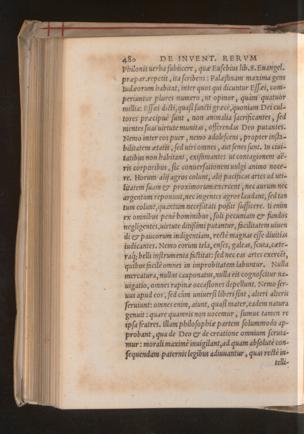 480 DE INVENT. RERVM
Philonis verba subiicere, quæ Eusebius lib. 8. Euangel.
præpar. repetit, ita scribens: Palæstinam maxima gens
Iudæorum habitat, inter quos qui dicuntur Essæi, com-
periuntur plures numero, ut opinor, quàm quatuor
millia: Essæi dicti, quasi sancti græcè, quoniam Dei cul-
tores præcipuè sunt, non animalia sacrificantes, sed
mentes suas uirtute munitas, offerendas Deo putantes.
Nemo inter eos puer, nemo adolescens, propter insta-
bilitatem ætatis, sed uiri omnes, aut senes sunt. In ciui-
tatibus non habitant, existimantes ut contagionem aë-
ris corporibus, sic conuersationem uulgi animo noce-
re. Horum alij agros colunt, alij pacificas artes ad uti-
litatem suam & proximorum exercent, nec aurum nec
argentum reponunt, nec ingentes agros laudant, sed tan
tum colunt, quantum necessitati possit sufficere. ii enim
ex omnibus penè hominibus, soli pecuniam & fundos
negligentes, uirtute ditissimi putantur, facilitatem uiuen
di & paucorum indigentiam, rectè magnas esse diuitias
iudicantes. Nemo eorum tela, enses, galeas, scuta, cæte-
raq́; belli instrumenta fictitat: sed nec eas artes exercēt,
quibus facilè omnes in improbitatem labuntur. Nulla
mercatura, nullus cauponatus, nulla eis cognoscitur na-
uigatio, omnes rapinæ occasiones depellunt. Nemo ser-
uus apud eos, sed cùm uniuersi liberi sint, alteri alteris
seruiunt: omnes enim, aiunt, quasi mater, eadem natura
genuit: quare quamuis non uocemur, sumus tamen re
ipsa fratres. Illam philosophiæ partem solummodo ap-
probant, qua de Deo & de creatione omnium scruta-
mur: morali maximè inuigilant, ad quam absolutè con-
sequendam paternis legibus adiuuantur, quas rectè in-
telli-